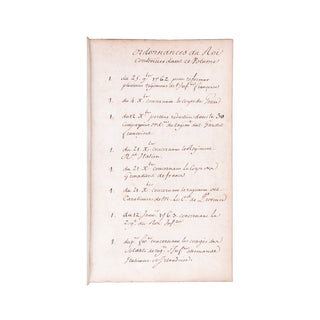 ordonnances du Roi
Contenües dans ce Volume
1. du 25. 9bre 1762 pour reformer
plusieurs regimens de l'Inf. françoise
1. du 4 Xbre concernant le Corps de
1. du 12 Xbre portant réduction dans les 30
Compagnies du Regim. des Gardes
françoises
1. du 21 Xbre concernant le Regiment
Royal Italien
1. du 21 Xbre concernant le Corps des
Grenadiers de france
1. du 21 Xbre concernant le regiment des
Carabiniers de M. le C. de Provence
1. du 12 Janv. 1763 concernant le
Reg. du Roi Inf.
1. du concernant les congés des
Soldats de Inf. allemande
Italienne et Irlandoise